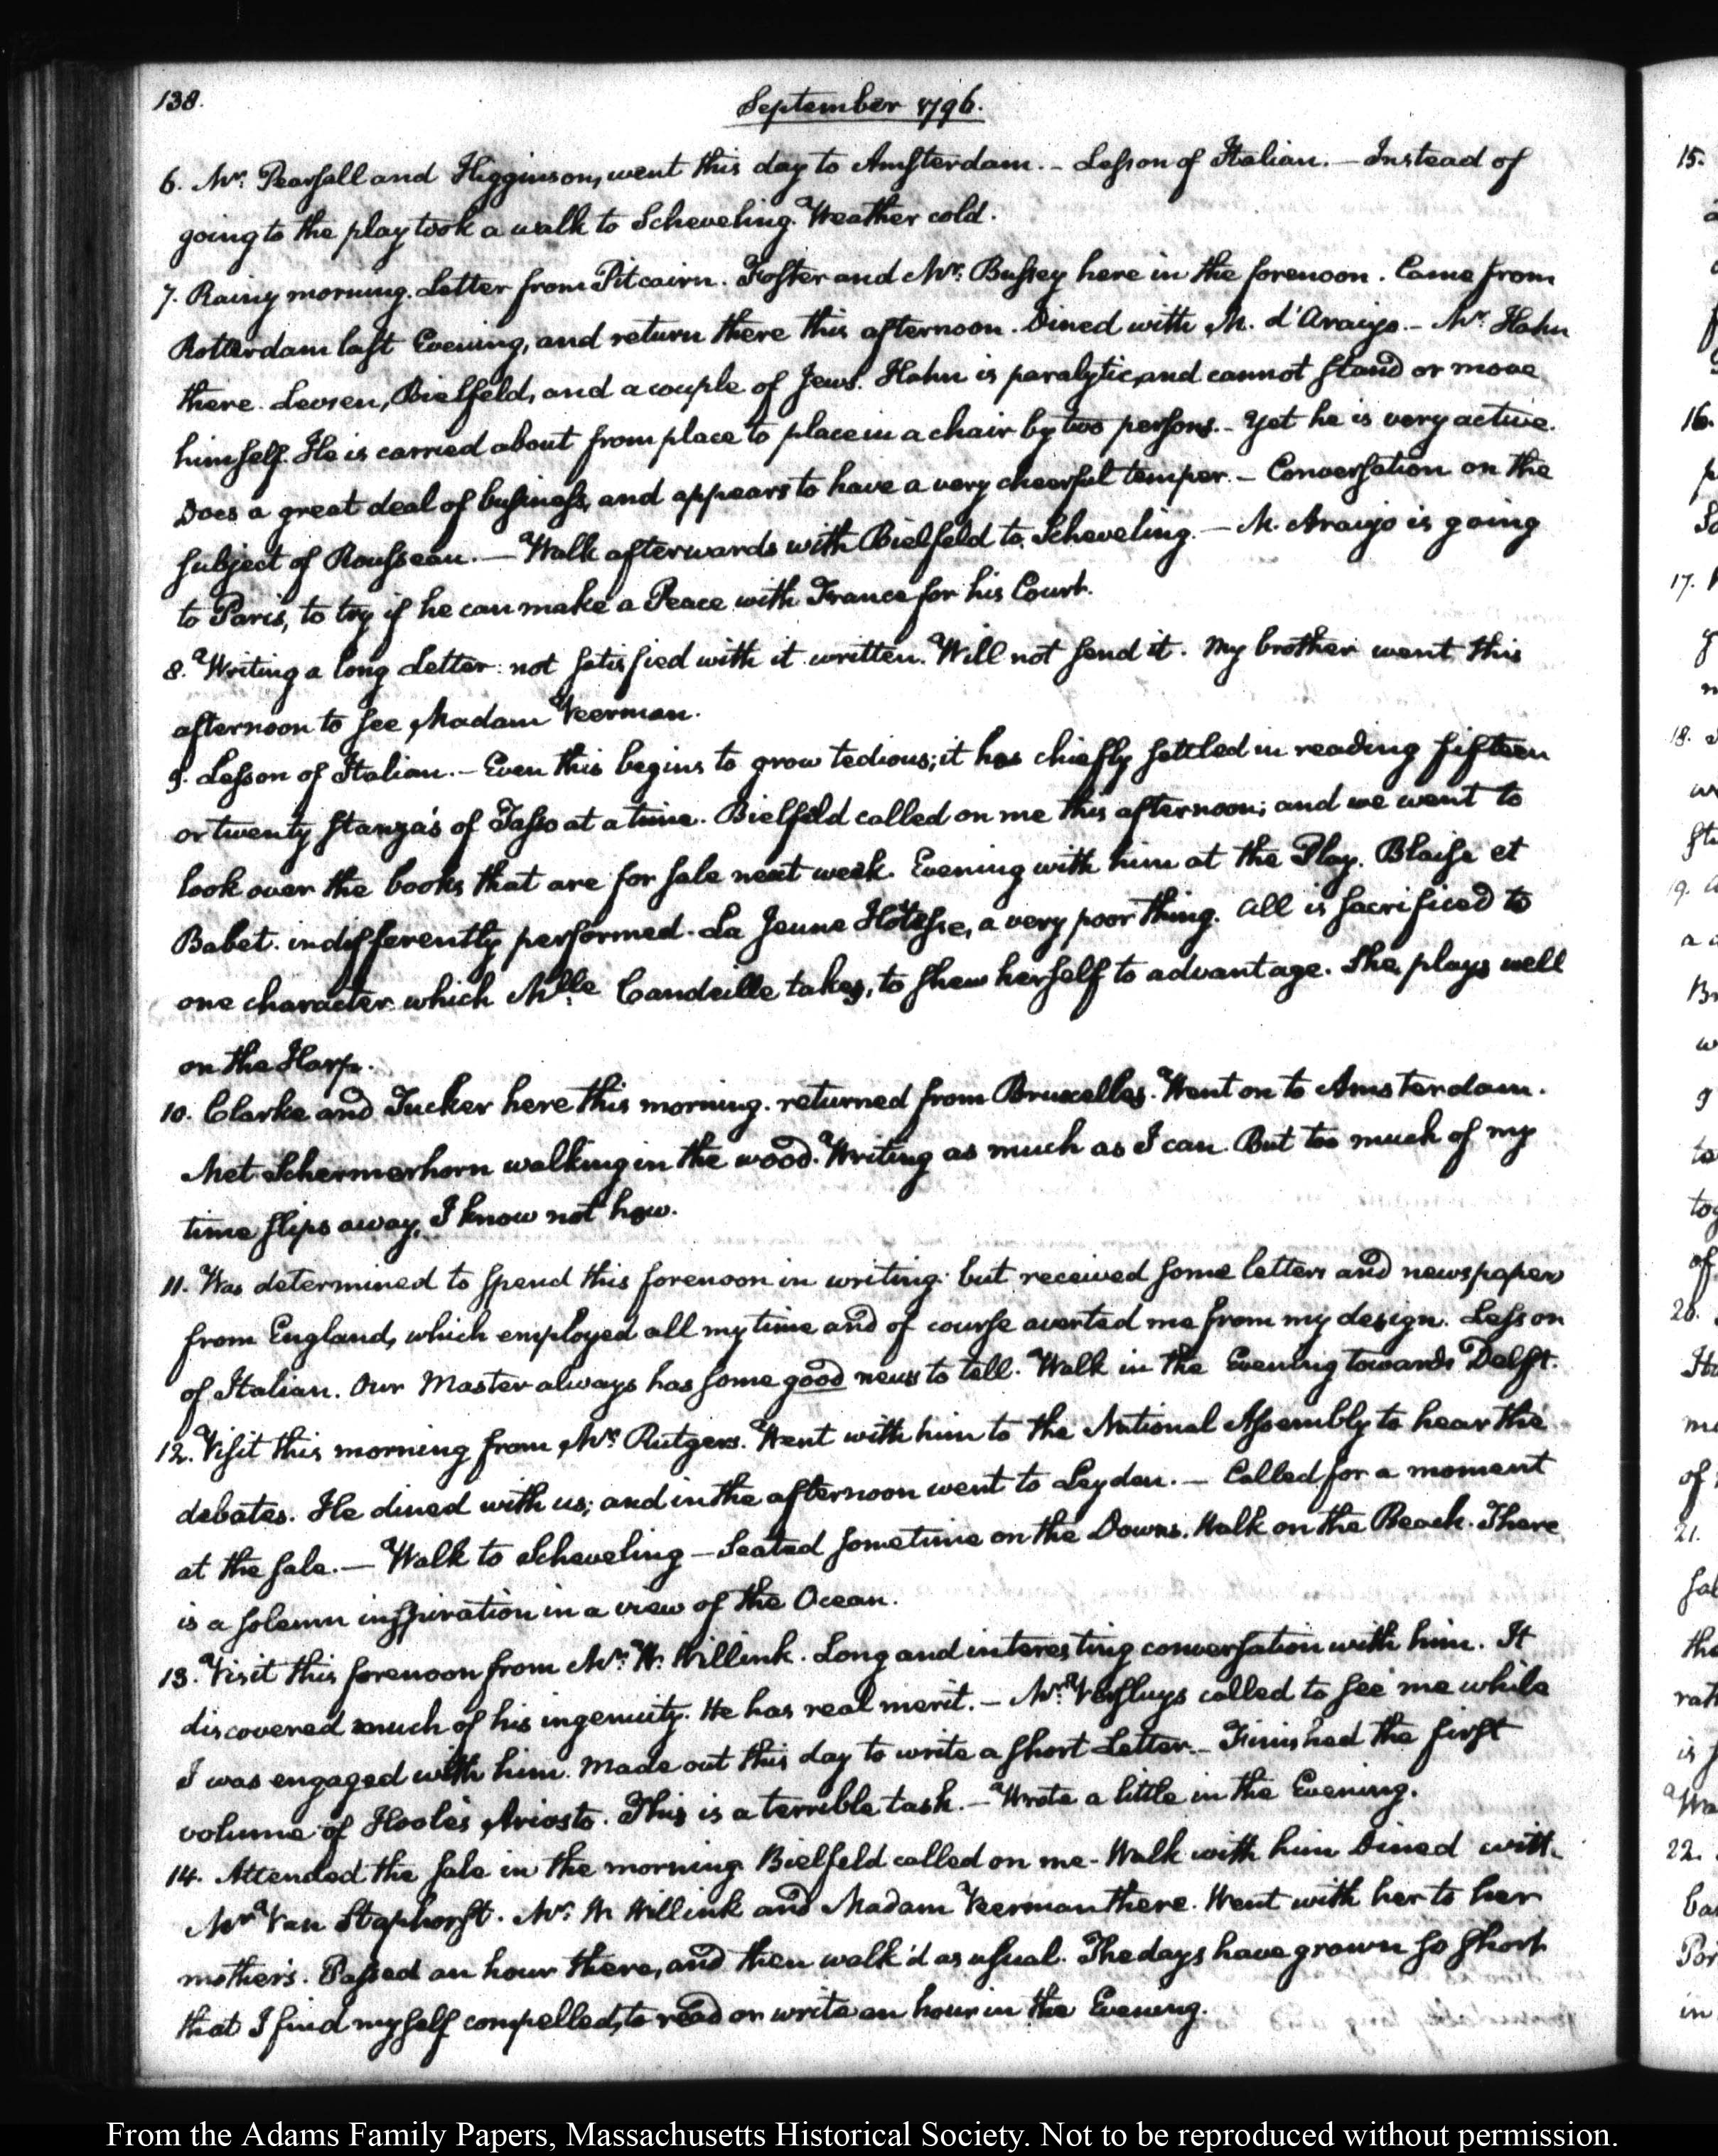 138.
September 1796.
6. Mr. Pearsall and Higginson, went this day to Amsterdam. – Lesson of Italian. – Instead of
going to the play took a walk to Scheveling. Weather cold.
7. Rainy morning. Letter from Pitcairn. Foster and Mr. Bussey here in the forenoon. Came from
Rotterdam last Evening, and return there this afternoon. Dined with M. d'Araujo. – Mr. Hahn
there. Levsen, Bielfeld, and a couple of Jews. Hahn is paralytic, and cannot stand or move
himself. He is carried about from place to place in a chair by two persons. – Yet he is very active.
Does a great deal of business, and appears to have a very cheerful temper. – Conversation on the
subject of Rousseau. — Walk afterwards with Bielfeld to Scheveling. — M. Araujo is going
to Paris, to try if he can make a Peace with France for his Court.
8. Writing a long Letter: not satisfied with it written. Will not send it. My brother went this
afternoon to see Madam Veerman.
9. Lesson of Italian. – Even this begins to grow tedious; it has chiefly settled in reading fifteen
or twenty stanza's of Tasso at a time. Bielfeld called on me this afternoon; and we went to
look over the books that are for sale next week. Evening with him at the Play. Blaise et
Babet. indifferently performed. La Jeune Hôtesse, a very poor thing. All is sacrificed to
one character which Mlle. Candeille takes, to shew herself to advantage. She plays well
on the Harp.
10. Clarke and Tucker here this morning. returned from Bruxelles. Went on to Amsterdam.
Met Schermerhorn walking in the wood. Writing as much as I can. But too much of my
time slips away, I know not how.
11. Was determined to spend this forenoon in writing: but received some letters and newspapers
from England, which employed all my time and of course averted me from my design. Lesson
of Italian. Our Master always has some good news to tell. Walk in the Evening towards Delft.
12. Visit this morning from Mr. Rutgers. Went with him to the National Assembly to hear the
debates. He dined with us; and in the afternoon went to Leyden. — Called for a moment
at the sale. — Walk to Scheveling – Seated sometime on the Downs. Walk on the Beach. There
is a solemn inspiration in a view of the Ocean.
13. Visit this forenoon from Mr. W. Willink. Long and interesting conversation with him. It
discovered much of his ingenuity. He has real merit. – Mr. Versluys called to see me while
I was engaged with him. Made out this day to write a short Letter. – Finished the first
volume of Hoole's Ariosto. This is a terrible task. – Wrote a little in the Evening.
14. Attended the sale in the morning. Bielfeld called on me. Walk with him. Dined with
Mr. Van Staphorst. Mr. W. Willink and Madam Veerman there. Went with her to her
mother's. Passed an hour there, and then walk'd as usual. The days have grown so short
that I find myself compelled, to read or write an hour in the Evening.
15.
16.
17.
18.
19.
20.
21.
22.
From the Adams Family Papers, Massachusetts Historical Society. Not to be reproduced without permission.